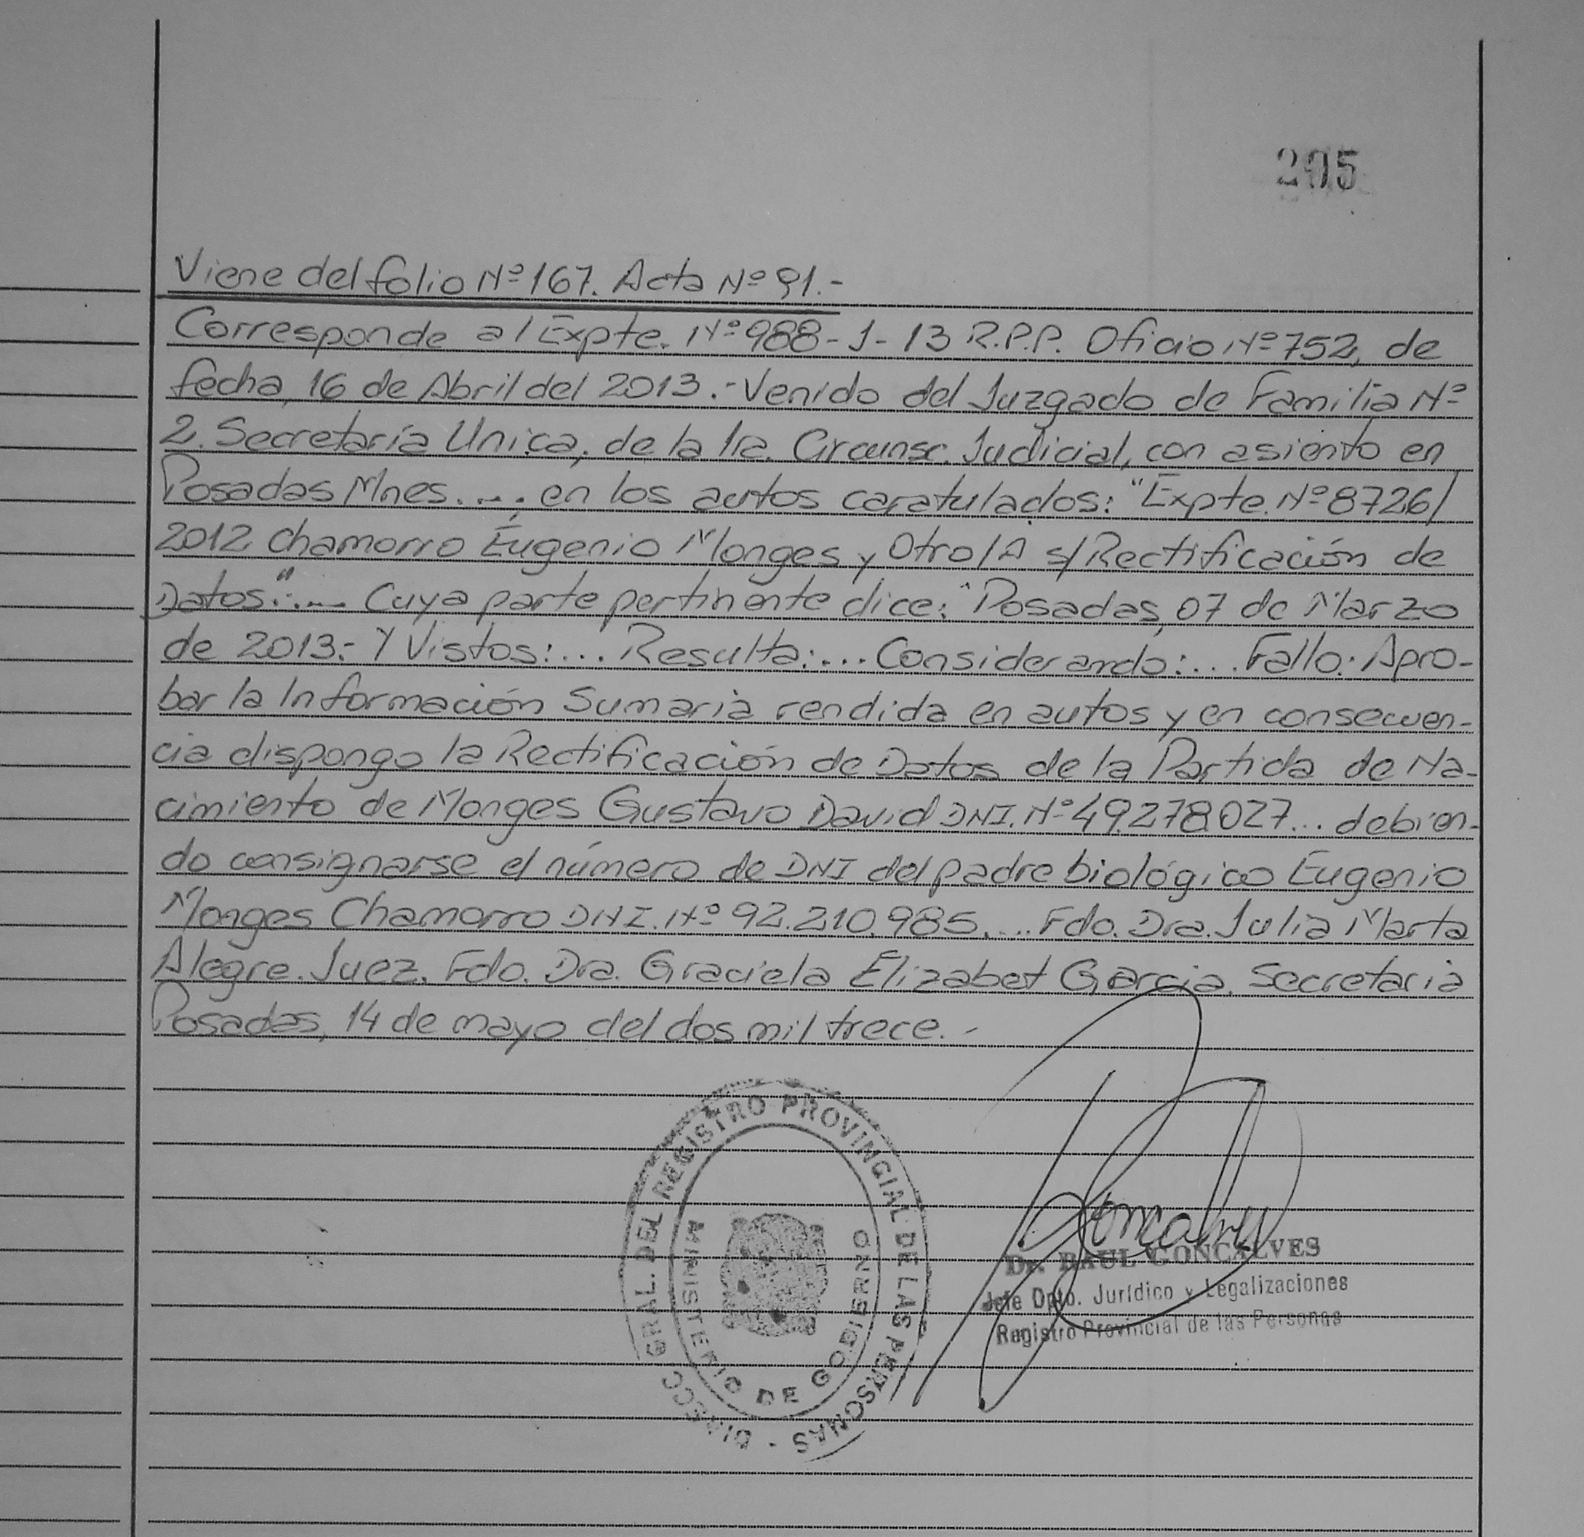 205
Viene del folio Nº 167. Acta Nº 91.-
Corresponde al Expte. Nº 988-J-13 R.P.P. Oficio Nº 752, de
fecha, 16 de Abril del 2013.- Venido del Juzgado de Familia Nº
2. Secretaría Unica, de la 1ra. Circunsc. Judicial, con asiento en
Posadas Mnes...., en los autos caratulados: "Expte. Nº 8726/
2012 Chamorro Eugenio Monges y Otro/A s/Rectificación de
Datos".... Cuya parte pertinente dice: "Posadas, 07 de Marzo
de 2013.- Y Vistos:... Resulta:... Considerando:... Fallo: Apro-
bar la Información Sumaria rendida en autos y en consecuen-
cia dispongo la Rectificación de Datos de la Partida de Na-
cimiento de Monges Gustavo David DNI. Nº 49.278.027... debien-
do consignarse el número de DNI del padre biológico Eugenio
Monges Chamorro DNI. Nº 92.210.985.... Fdo. Dra. Julia Marta
Alegre. Juez. Fdo. Dra. Graciela Elizabet Garcia. Secretaria
Posadas, 14 de mayo del dos mil trece.-
DIRECC. GRAL. DEL REGISTRO PROVINCIAL DE LAS PERSONAS -
MINISTERIO DE GOBIERNO
Dr. RAUL GONCALVES
Jefe Dpto. Jurídico y Legalizaciones
Registro Provincial de las Personas